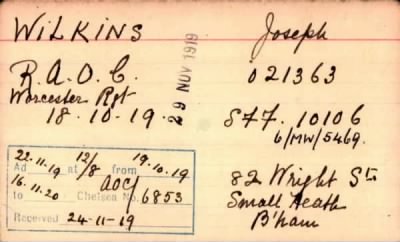 WILKINS Joseph
29 NOV 1919
R.A.O.C. 021363
Worcester Rgt
18.10.19. S77.10106
6/MW/5469.
22.11.19 12/8 19.10.19
Ad at from
16.11.20 AOC
to Chelsea No. 6853
Received 24-11-19
82 Wright St.
Small Heath
B'ham